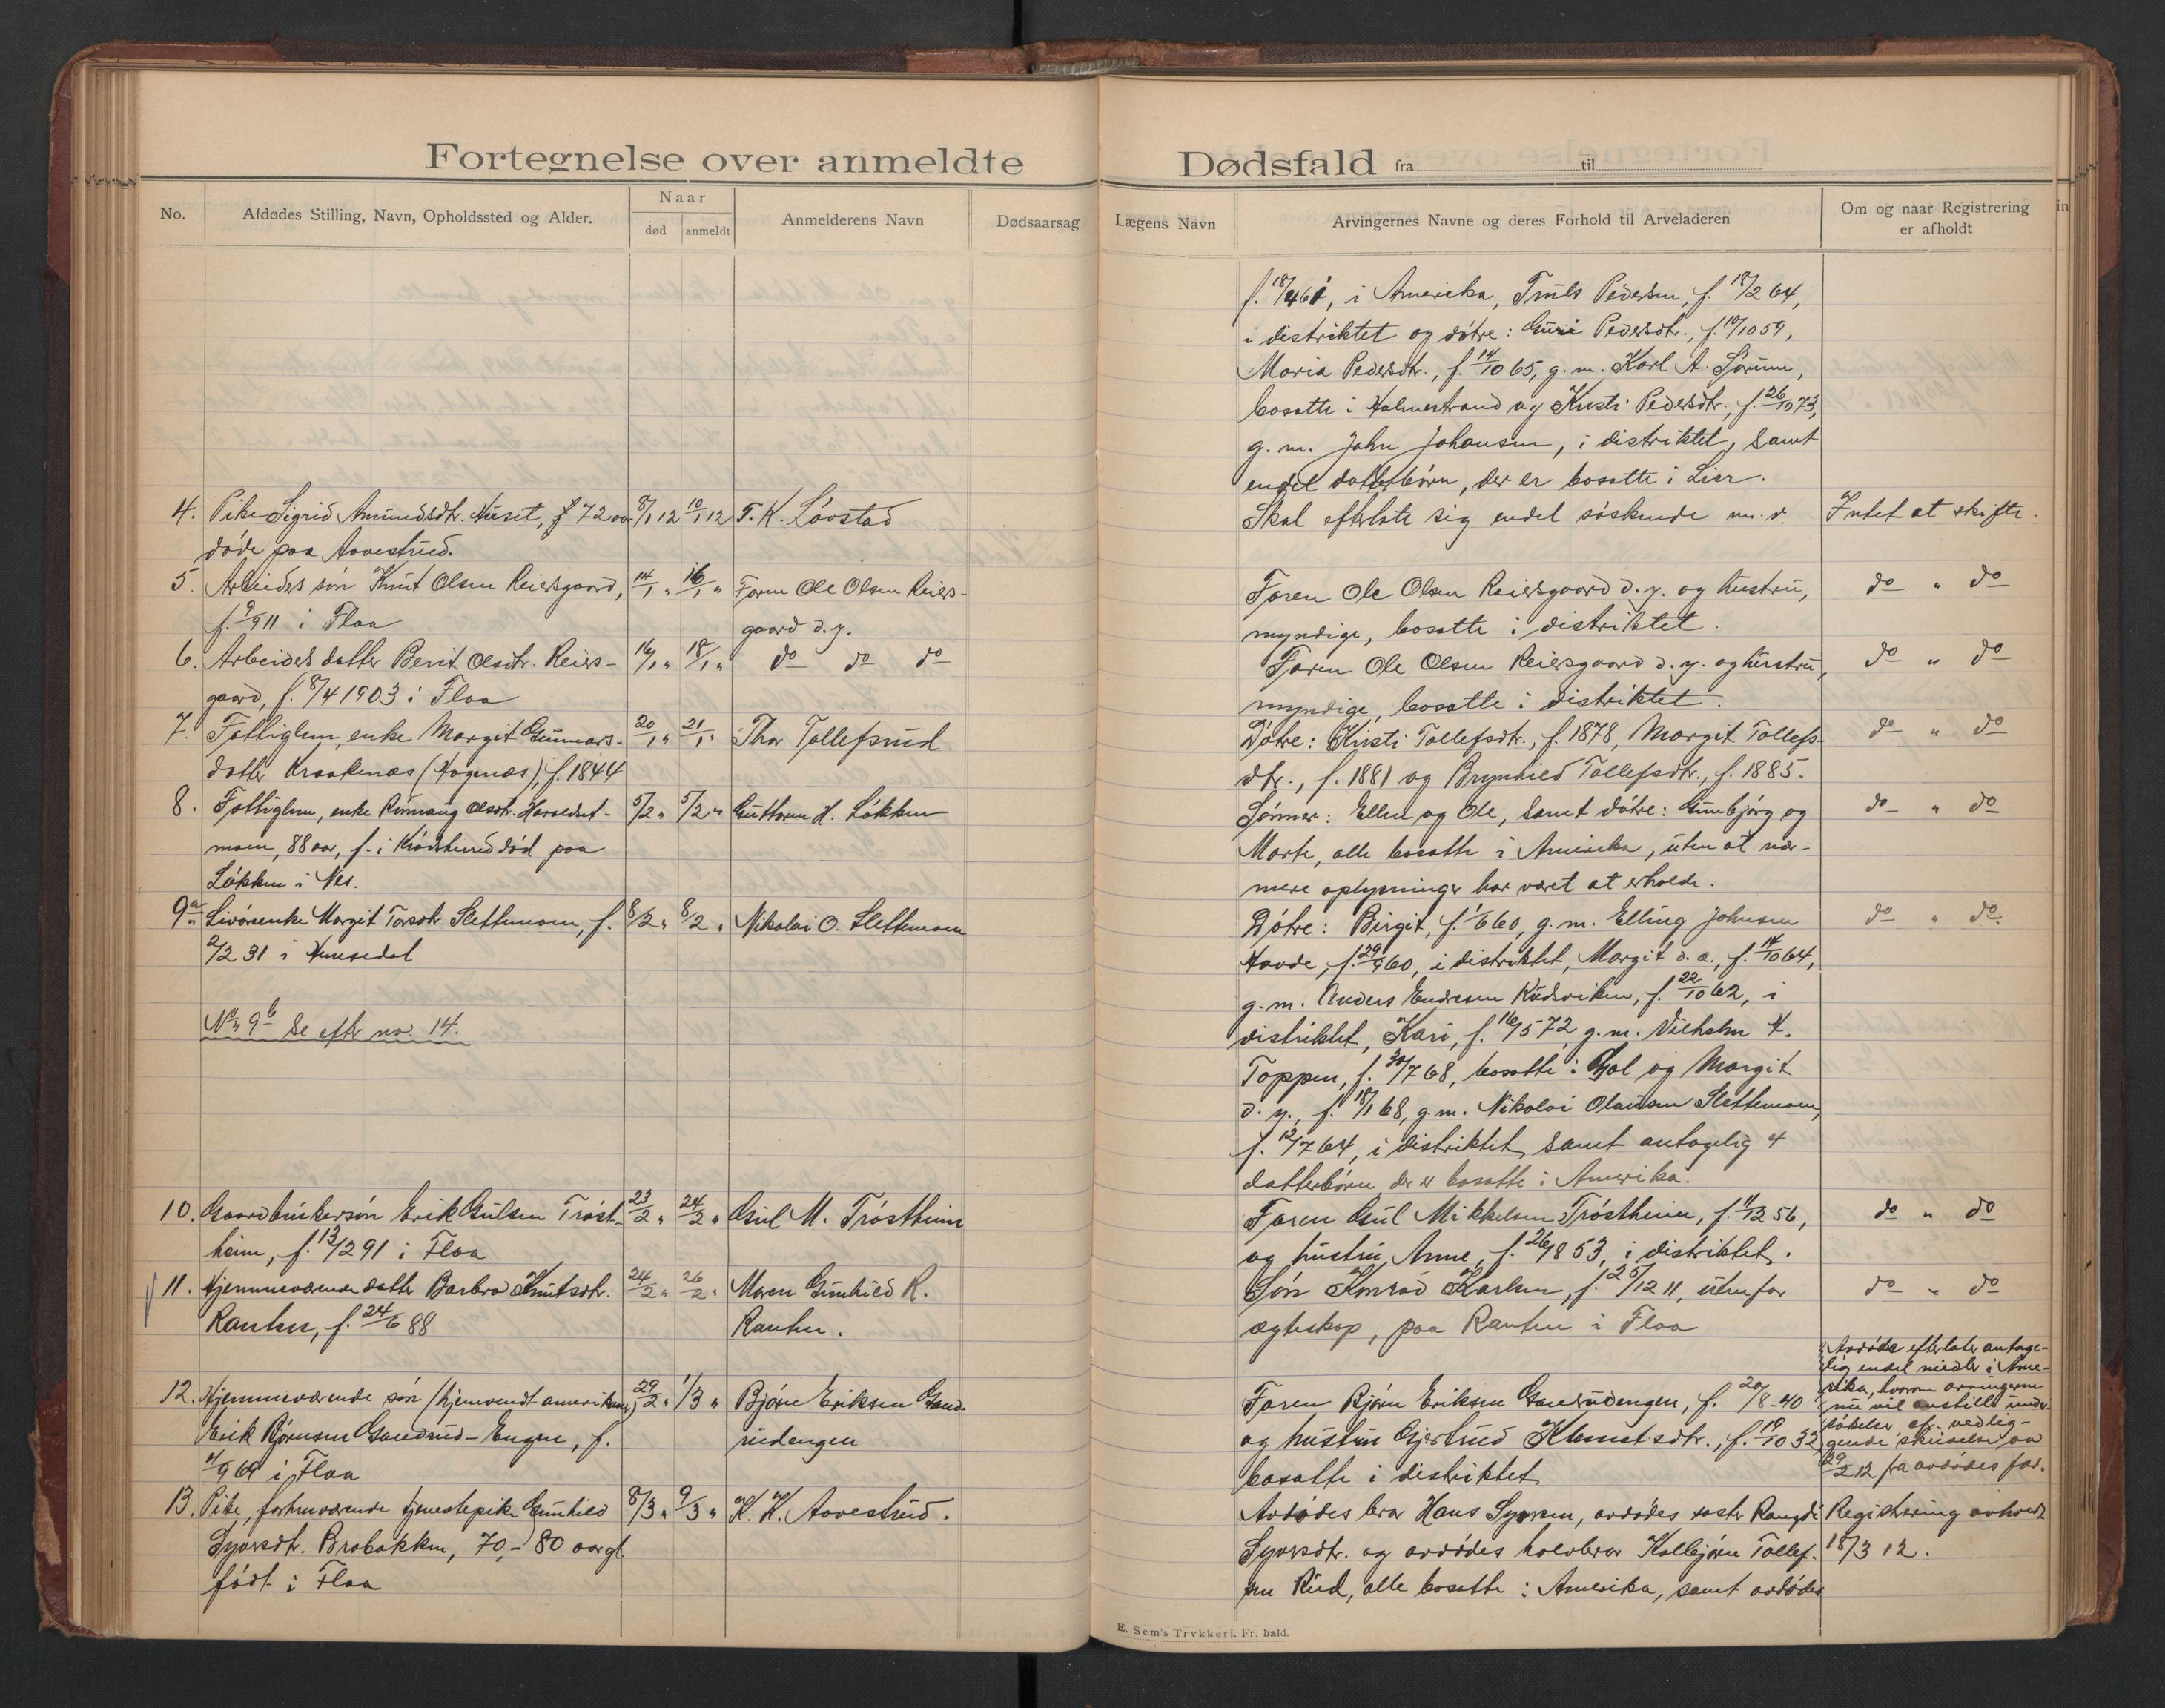 Fortegnelse over anmeldte
No.
Afdødes Stilling, Navn, Opholdssted og Alder.
Naar
død
anmeldt
Anmelderens Navn
Dødsaarsag
4. Pike Sigrid Amundsdtr. Huset, 72 aar 8/1 12 10/1 12 T. K. Løvstad
døde paa Aavestrud.
5. Arbeiders søn Knut Olsen Reiersgaard, 14/1 " 16/1 " Faren Ole Olsen Reiers-
f. 9/9 11 i Flaa gaard d.y.
6. Arbeiders datter Berit Olsdtr. Reiers- 16/1 " 18/1 " do do do
gaard, f. 8/4 1903 i Flaa
7. Fattiglem, enke Margit Gunnars- 20/1 " 21/1 " Thor Tollefsrud
datter Kraakenæs (Hagenæs), f. 1844
8. Fattiglem, enke Rønnaug Olsdtr. Haraldset- 5/2 " 5/2 " Guttorm H. Løkken
moen, 88 aar, f. i Krødsherred død paa
Løkken i Nes.
9a. Livørenke Margit Torsdtr. Slettemoen, f. 8/2 " 8/2 " Nikolai O. Slettemoen
2/2 31 i Hemsedal
No 9b Se efter no. 14.
10. Gaardbrukersøn Erik Gulsen Trøst- 23/2 " 24/2 " Gul M. Trøstheim
heim, f. 13/2 91 i Flaa
11. Hjemmeværende datter Barbro Knutsdtr. 24/2 " 26/2 " Maren Gunhild R.
Ranten, f. 24/6 88 Ranten.
12. Hjemmeværende søn (hjemvendt amerikaner) 29/2 " 1/3 " Bjørn Eriksen Gand-
Erik Bjørnsen Gandrud-Engen, f. rudengen
4/9 69 i Flaa
13. Pike, forhenværende tjenestepike Gunhild 8/3 " 9/3 " K. K. Aavestrud.
Syversdtr. Brobakken, 70-80 aar gl.
født i Flaa
Dødsfald fra til
Lægens Navn
Arvingernes Navne og deres Forhold til Arveladeren
Om og naar Registrering
er afholdt
f. 18/4 61, i Amerika, Truls Pedersen, f. 18/2 64,
i distriktet og døtre: Guri Pedersdtr., f. 10/10 59,
Maria Pedersdtr., f. 14/10 65, g. m. Karl A. Sørum,
bosatte i Holmestrand og Kristi Pedersdtr., f. 26/10 73,
g. m. John Johansen, i distriktet, samt
endel datterbørn, der er bosatte i Lier.
Skal efterlate sig endel søskende m. v. Intet at skifte.
Faren Ole Olsen Reiersgaard d. y. og hustru, do " do
myndige, bosatte i distriktet.
Faren Ole Olsen Reiersgaard d. y. og hustru, do " do
myndige, bosatte i distriktet.
Døtre: Kristi Tollefsdtr., f. 1878, Margit Tollefs- do " do
dtr., f. 1881 og Brynhild Tollefsdtr., f. 1885.
Sønner: Ellen og Ole, samt døtre: Gunbjørg og do " do
Marte, alle bosatte i Amerika, uten at nær-
mere oplysninger har været at erholde.
Døtre: Birgit, f. 1/6 60, g. m. Elling Johnsen do " do
Havde, f. 29/9 60, i distriktet, Margit d. æ., f. 14/10 64,
g. m. Anders Endresen Rudsviken, f. 22/10 62, i
distriktet, Kari, f. 16/5 72, g. m. Vilhelm H.
Toppen, f. 30/7 68, bosatte i Gol og Margit
d. y., f. 18/1 68, g. m. Nikolai Olausen Slettemoen,
f. 12/7 64, i distriktet, samt antagelig 4
datterbørn der er bosatte i Amerika.
Faren Gul Mikkelsen Trøstheim, f. 11/12 56, do " do
og hustru, Anne, f. 26/8 53, i distriktet.
Søn Konrad Karlsen, f. 25/12 11, utenfor do " do
ægteskap, paa Ranten i Flaa
Faren Bjørn Eriksen Gandrudengen, f. 20/8-40
og hustru Gjertrud Klemetsdtr., f. 19/10 32
bosatte i distriktet
Avdøde efterlater antage-
lig endel midler i Ame-
rika, hvorom arvingerne
nu vil anstille under-
søkelser, cfr. vedlig-
gende skrivelse av
29/2 12 fra avdødes far.
Avdødes bror Hans Syversen, avdødes søster Rangdi Registrering avholdt
Syversdtr. og avdødes halvbror Kolbjørn Tollef- 18/3 12.
sen Rud, alle bosatte i Amerika, samt avdødes
E. Sem's Trykkeri. Fr. hald.